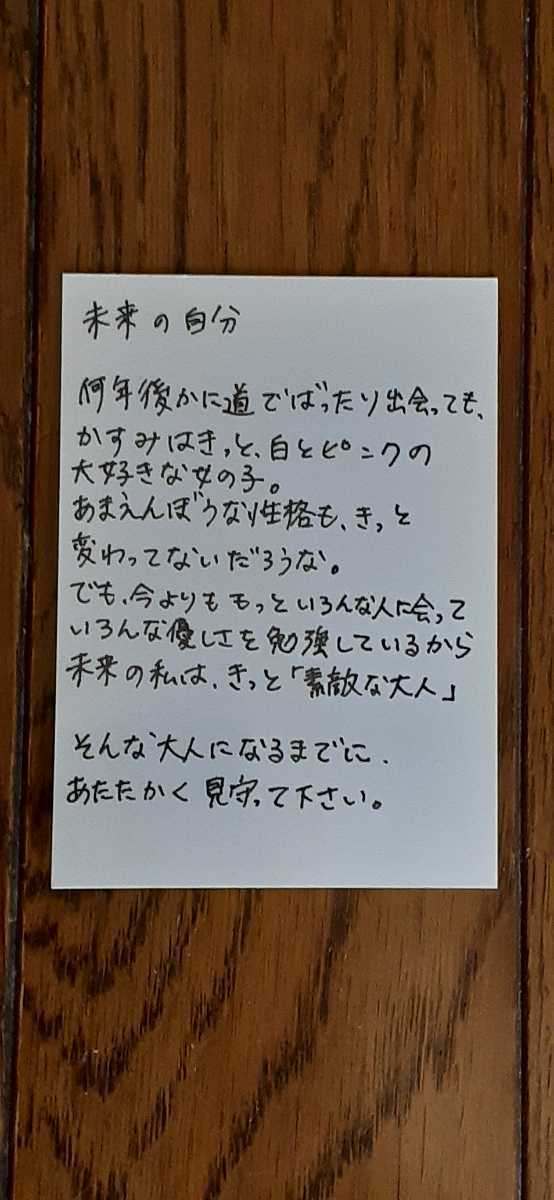 未来の自分
何年後かに道でばったり出会っても、
かすみはきっと、白とピンクの
大好きな女の子。
あまえんぼうな性格も、きっと
変わってないだろうな。
でも、今よりももっといろんな人に会って
いろんな優しさを勉強しているから
未来の私は、きっと「素敵な大人」
そんな大人になるまでに、
あたたかく見守って下さい。